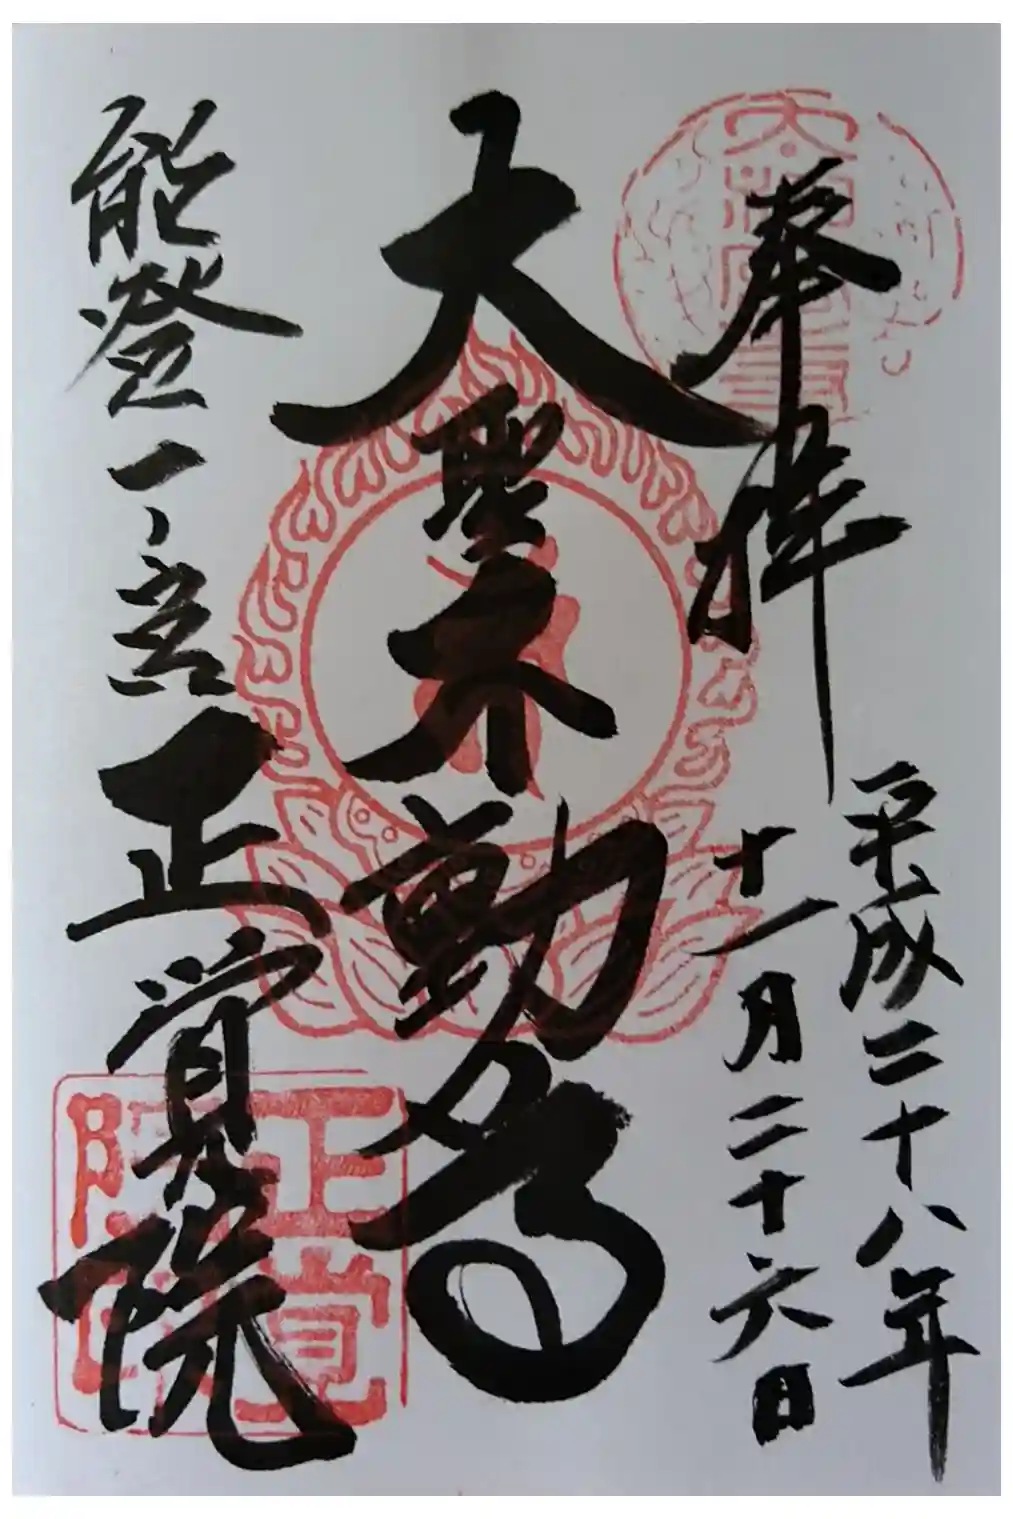 奉拝
平成二十八年
十一月二十六日
大聖不動尊
能登一宮
正覚院
正覚
院印